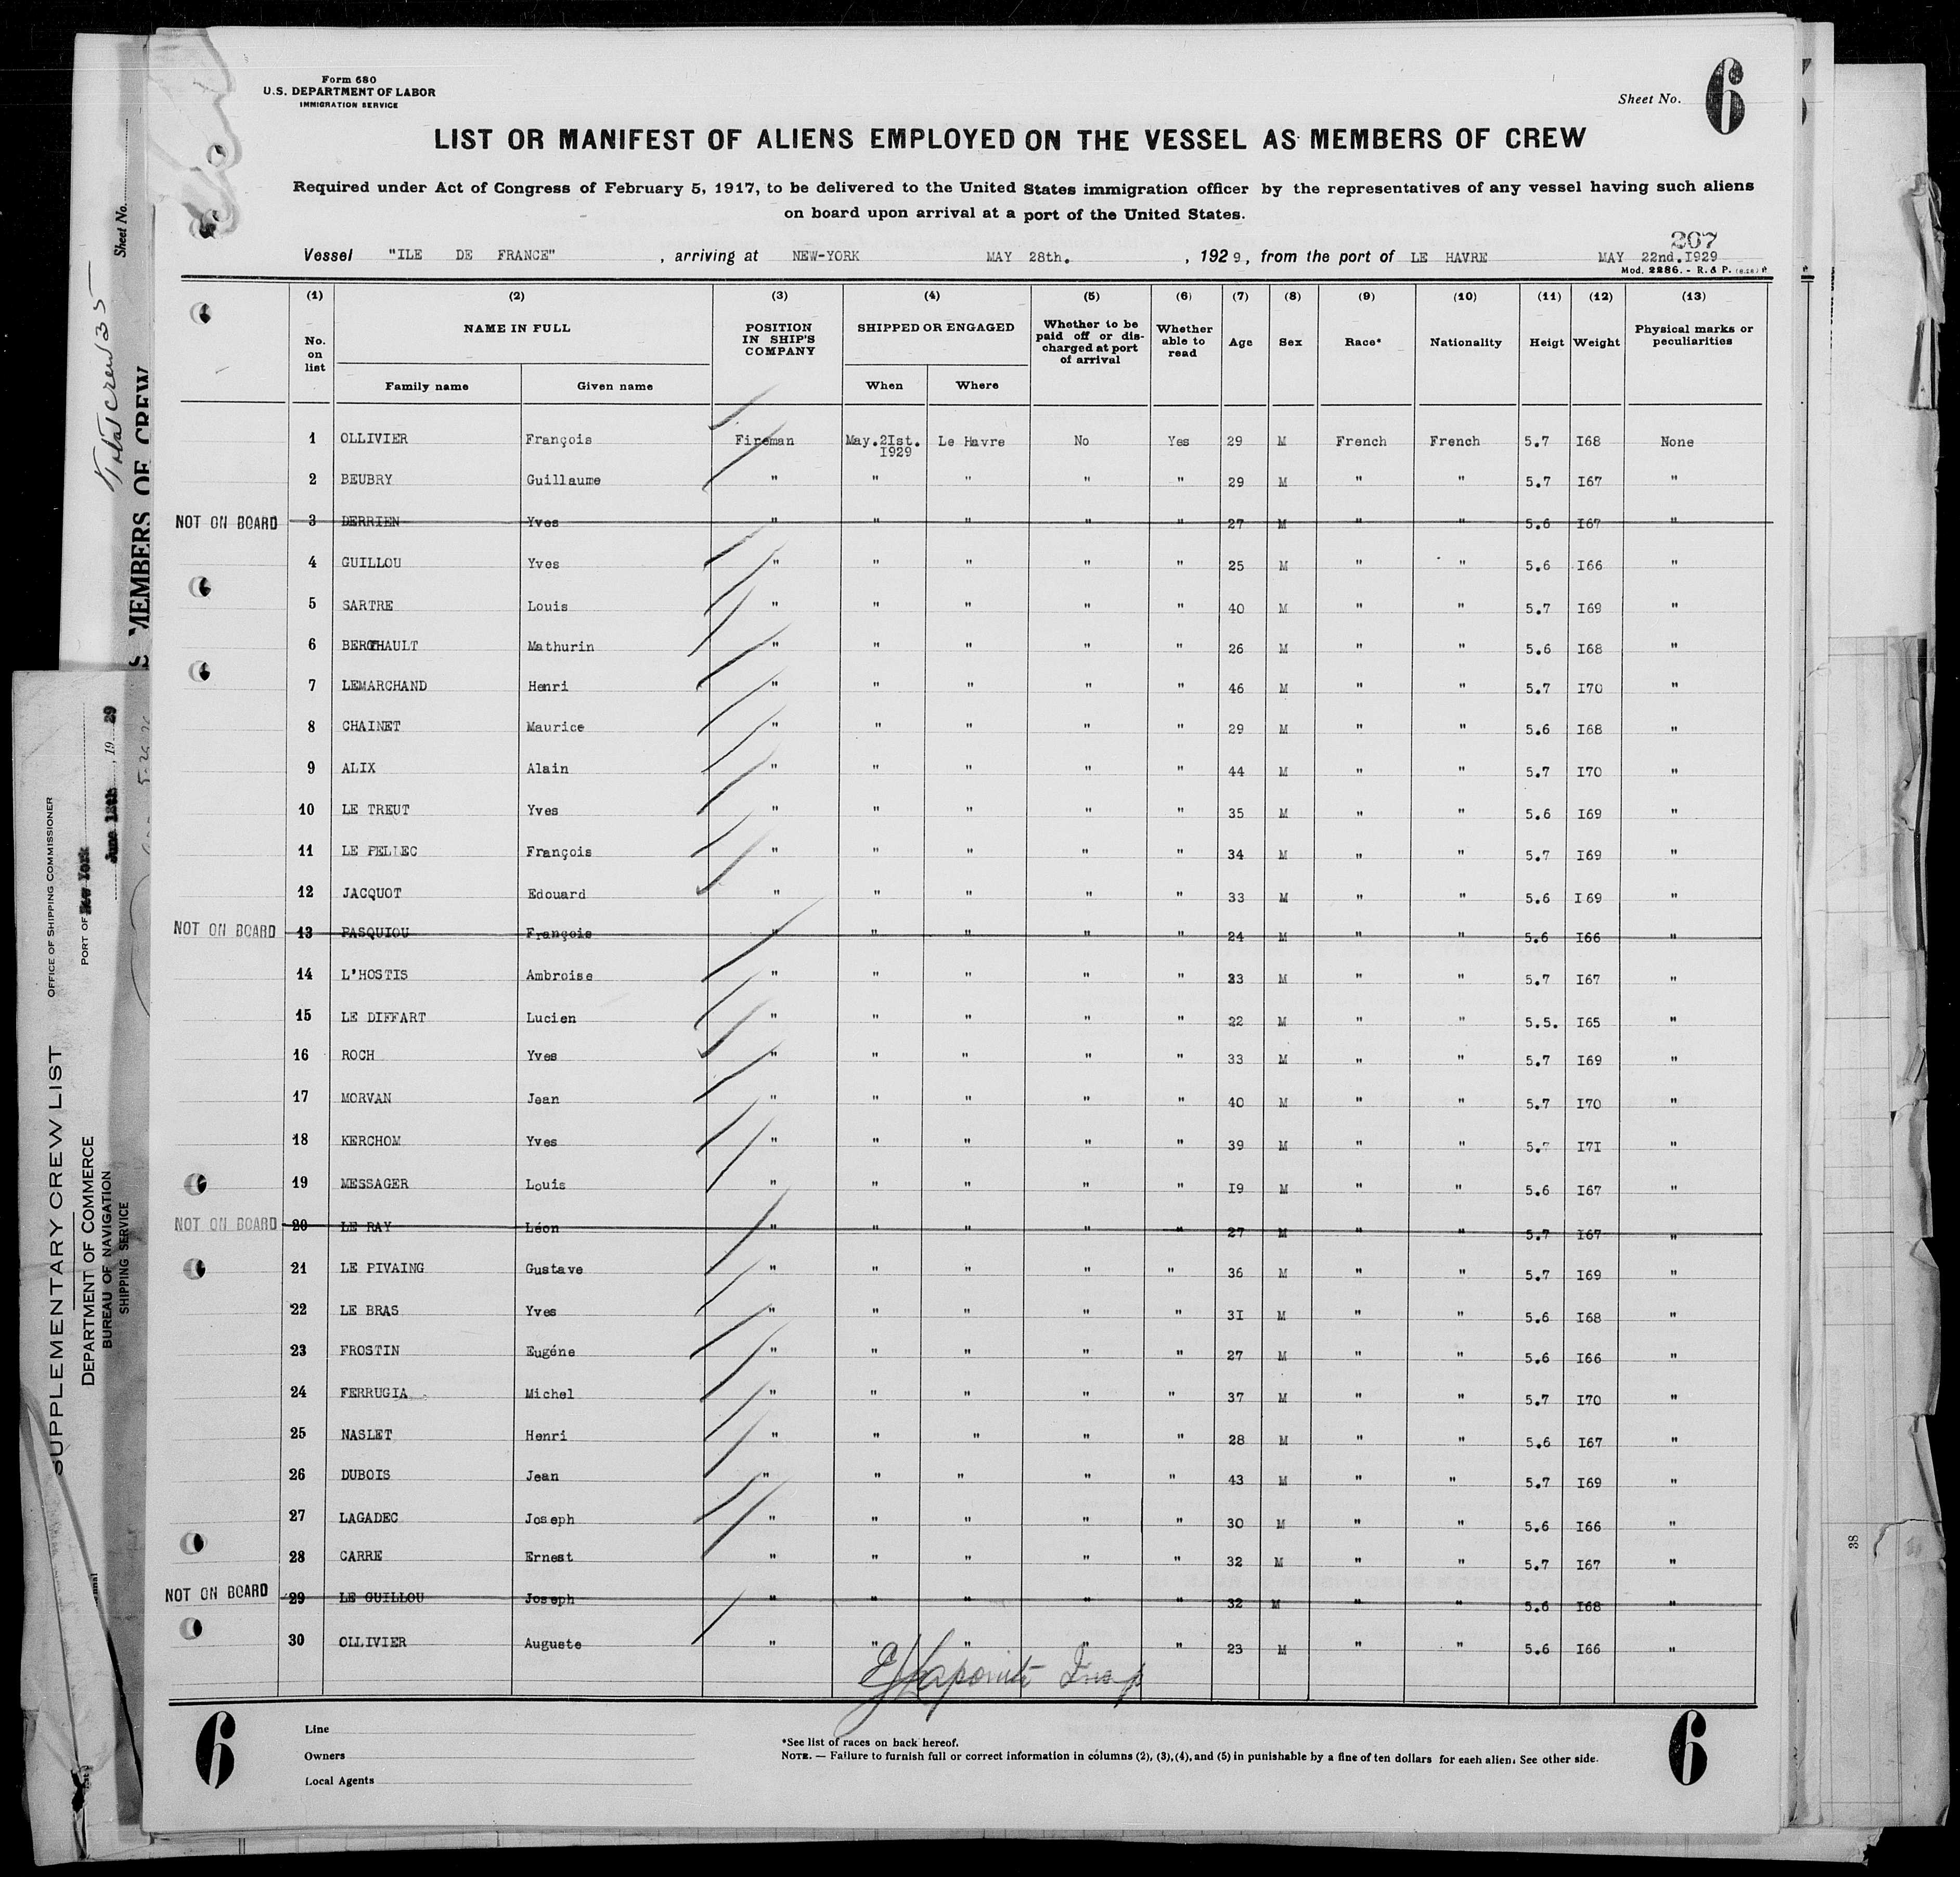 Form 680
U.S. DEPARTMENT OF LABOR
IMMIGRATION SERVICE
Sheet No. 6
LIST OR MANIFEST OF ALIENS EMPLOYED ON THE VESSEL AS MEMBERS OF CREW
Required under Act of Congress of February 5, 1917, to be delivered to the United States immigration officer by the representatives of any vessel having such aliens
on board upon arrival at a port of the United States.
207
Vessel "ILE DE FRANCE", arriving at NEW-YORK MAY 28th., 1929, from the port of LE HAVRE MAY 22nd.I929
Mod. 2286. - R. & P.
(1) (2) (3) (4) (5) (6) (7) (8) (9) (10) (11) (12) (13)
No. on list NAME IN FULL Family name Given name POSITION IN SHIP'S COMPANY SHIPPED OR ENGAGED When Where Whether to be paid off or discharged at port of arrival Whether able to read Age Sex Race* Nationality Heigt Weight Physical marks or peculiarities
1 OLLIVIER François Fireman May.2Ist. I929 Le Havre No Yes 29 M French French 5.7 I68 None
2 BEUBRY Guillaume " " " " " 29 M " " 5.7 I67 "
NOT ON BOARD 3 DERRIEN Yves " " " " " 27 M " " 5.6 I67 "
4 GUILLOU Yves " " " " " 25 M " " 5.6 I66 "
5 SARTRE Louis " " " " " 40 M " " 5.7 I69 "
6 BERTHAULT Mathurin " " " " " 26 M " " 5.6 I68 "
7 LEMARCHAND Henri " " " " " 46 M " " 5.7 I70 "
8 CHAINET Maurice " " " " " 29 M " " 5.6 I68 "
9 ALIX Alain " " " " " 44 M " " 5.7 I70 "
10 LE TREUT Yves " " " " " 35 M " " 5.6 I69 "
11 LE PELLEC François " " " " " 34 M " " 5.7 I69 "
12 JACQUOT Edouard " " " " " 33 M " " 5.6 I69 "
NOT ON BOARD 13 PASQUIOU François " " " " " 24 M " " 5.6 I66 "
14 L'HOSTIS Ambroise " " " " " 23 M " " 5.7 I67 "
15 LE DIFFART Lucien " " " " " 22 M " " 5.5. I65 "
16 ROCH Yves " " " " " 33 M " " 5.7 I69 "
17 MORVAN Jean " " " " " 40 M " " 5.7 I70 "
18 KERCHOM Yves " " " " " 39 M " " 5.7 I7I "
19 MESSAGER Louis " " " " " I9 M " " 5.6 I67 "
NOT ON BOARD 20 LE RAY Léon " " " " " 27 M " " 5.7 I67 "
21 LE PIVAING Gustave " " " " " 36 M " " 5.7 I69 "
22 LE BRAS Yves " " " " " 3I M " " 5.6 I68 "
23 FROSTIN Eugéne " " " " " 27 M " " 5.6 I66 "
24 FERRUGIA Michel " " " " " 37 M " " 5.7 I70 "
25 NASLET Henri " " " " " 28 M " " 5.6 I67 "
26 DUBOIS Jean " " " " " 43 M " " 5.7 I69 "
27 LAGADEC Joseph " " " " " 30 M " " 5.6 I66 "
28 CARRE Ernest " " " " " 32 M " " 5.7 I67 "
NOT ON BOARD 29 LE GUILLOU Joseph " " " " " 32 M " " 5.6 I68 "
30 OLLIVIER Auguste " " " " " 23 M " " 5.6 I66 "
Lapointe Insp
6
Line
Owners
Local Agents
*See list of races on back hereof.
NOTE. — Failure to furnish full or correct information in columns (2), (3), (4), and (5) in punishable by a fine of ten dollars for each alien. See other side.
6
Sheet No.
Total crew 35
MEMBERS OF CREW
SUPPLEMENTARY CREW LIST
DEPARTMENT OF COMMERCE
BUREAU OF NAVIGATION
SHIPPING SERVICE
OFFICE OF SHIPPING COMMISSIONER
PORT OF New York
June 18th, 19 29
38